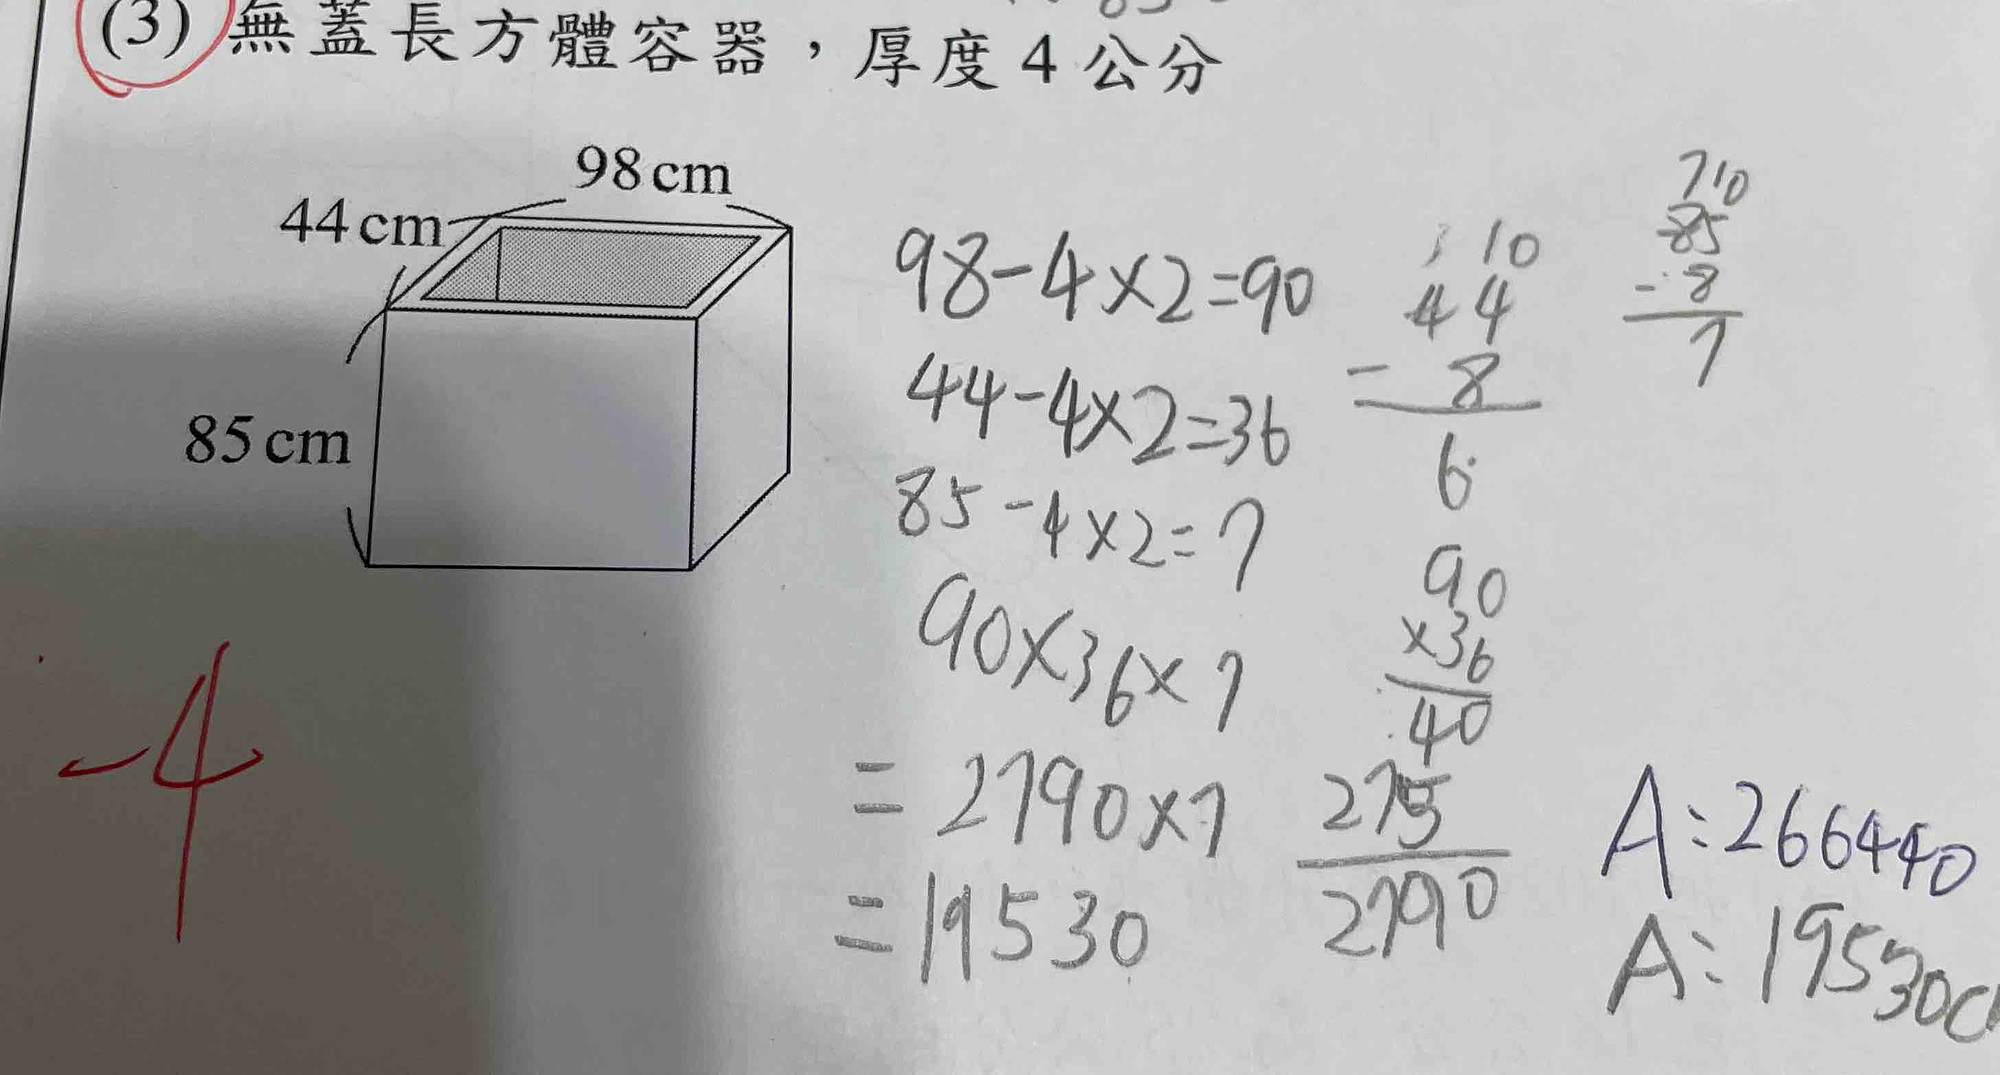 (3) 無蓋長方體容器，厚度 4 公分
98 cm
44 cm
85 cm
98-4×2=90
44-4×2=36
85-4×2=7
90×36×7
=2790×7
=19530
10
44
-8
6
710
85
-8
7
90
×36
40
275
2790
-4
A:266440
A:19530c